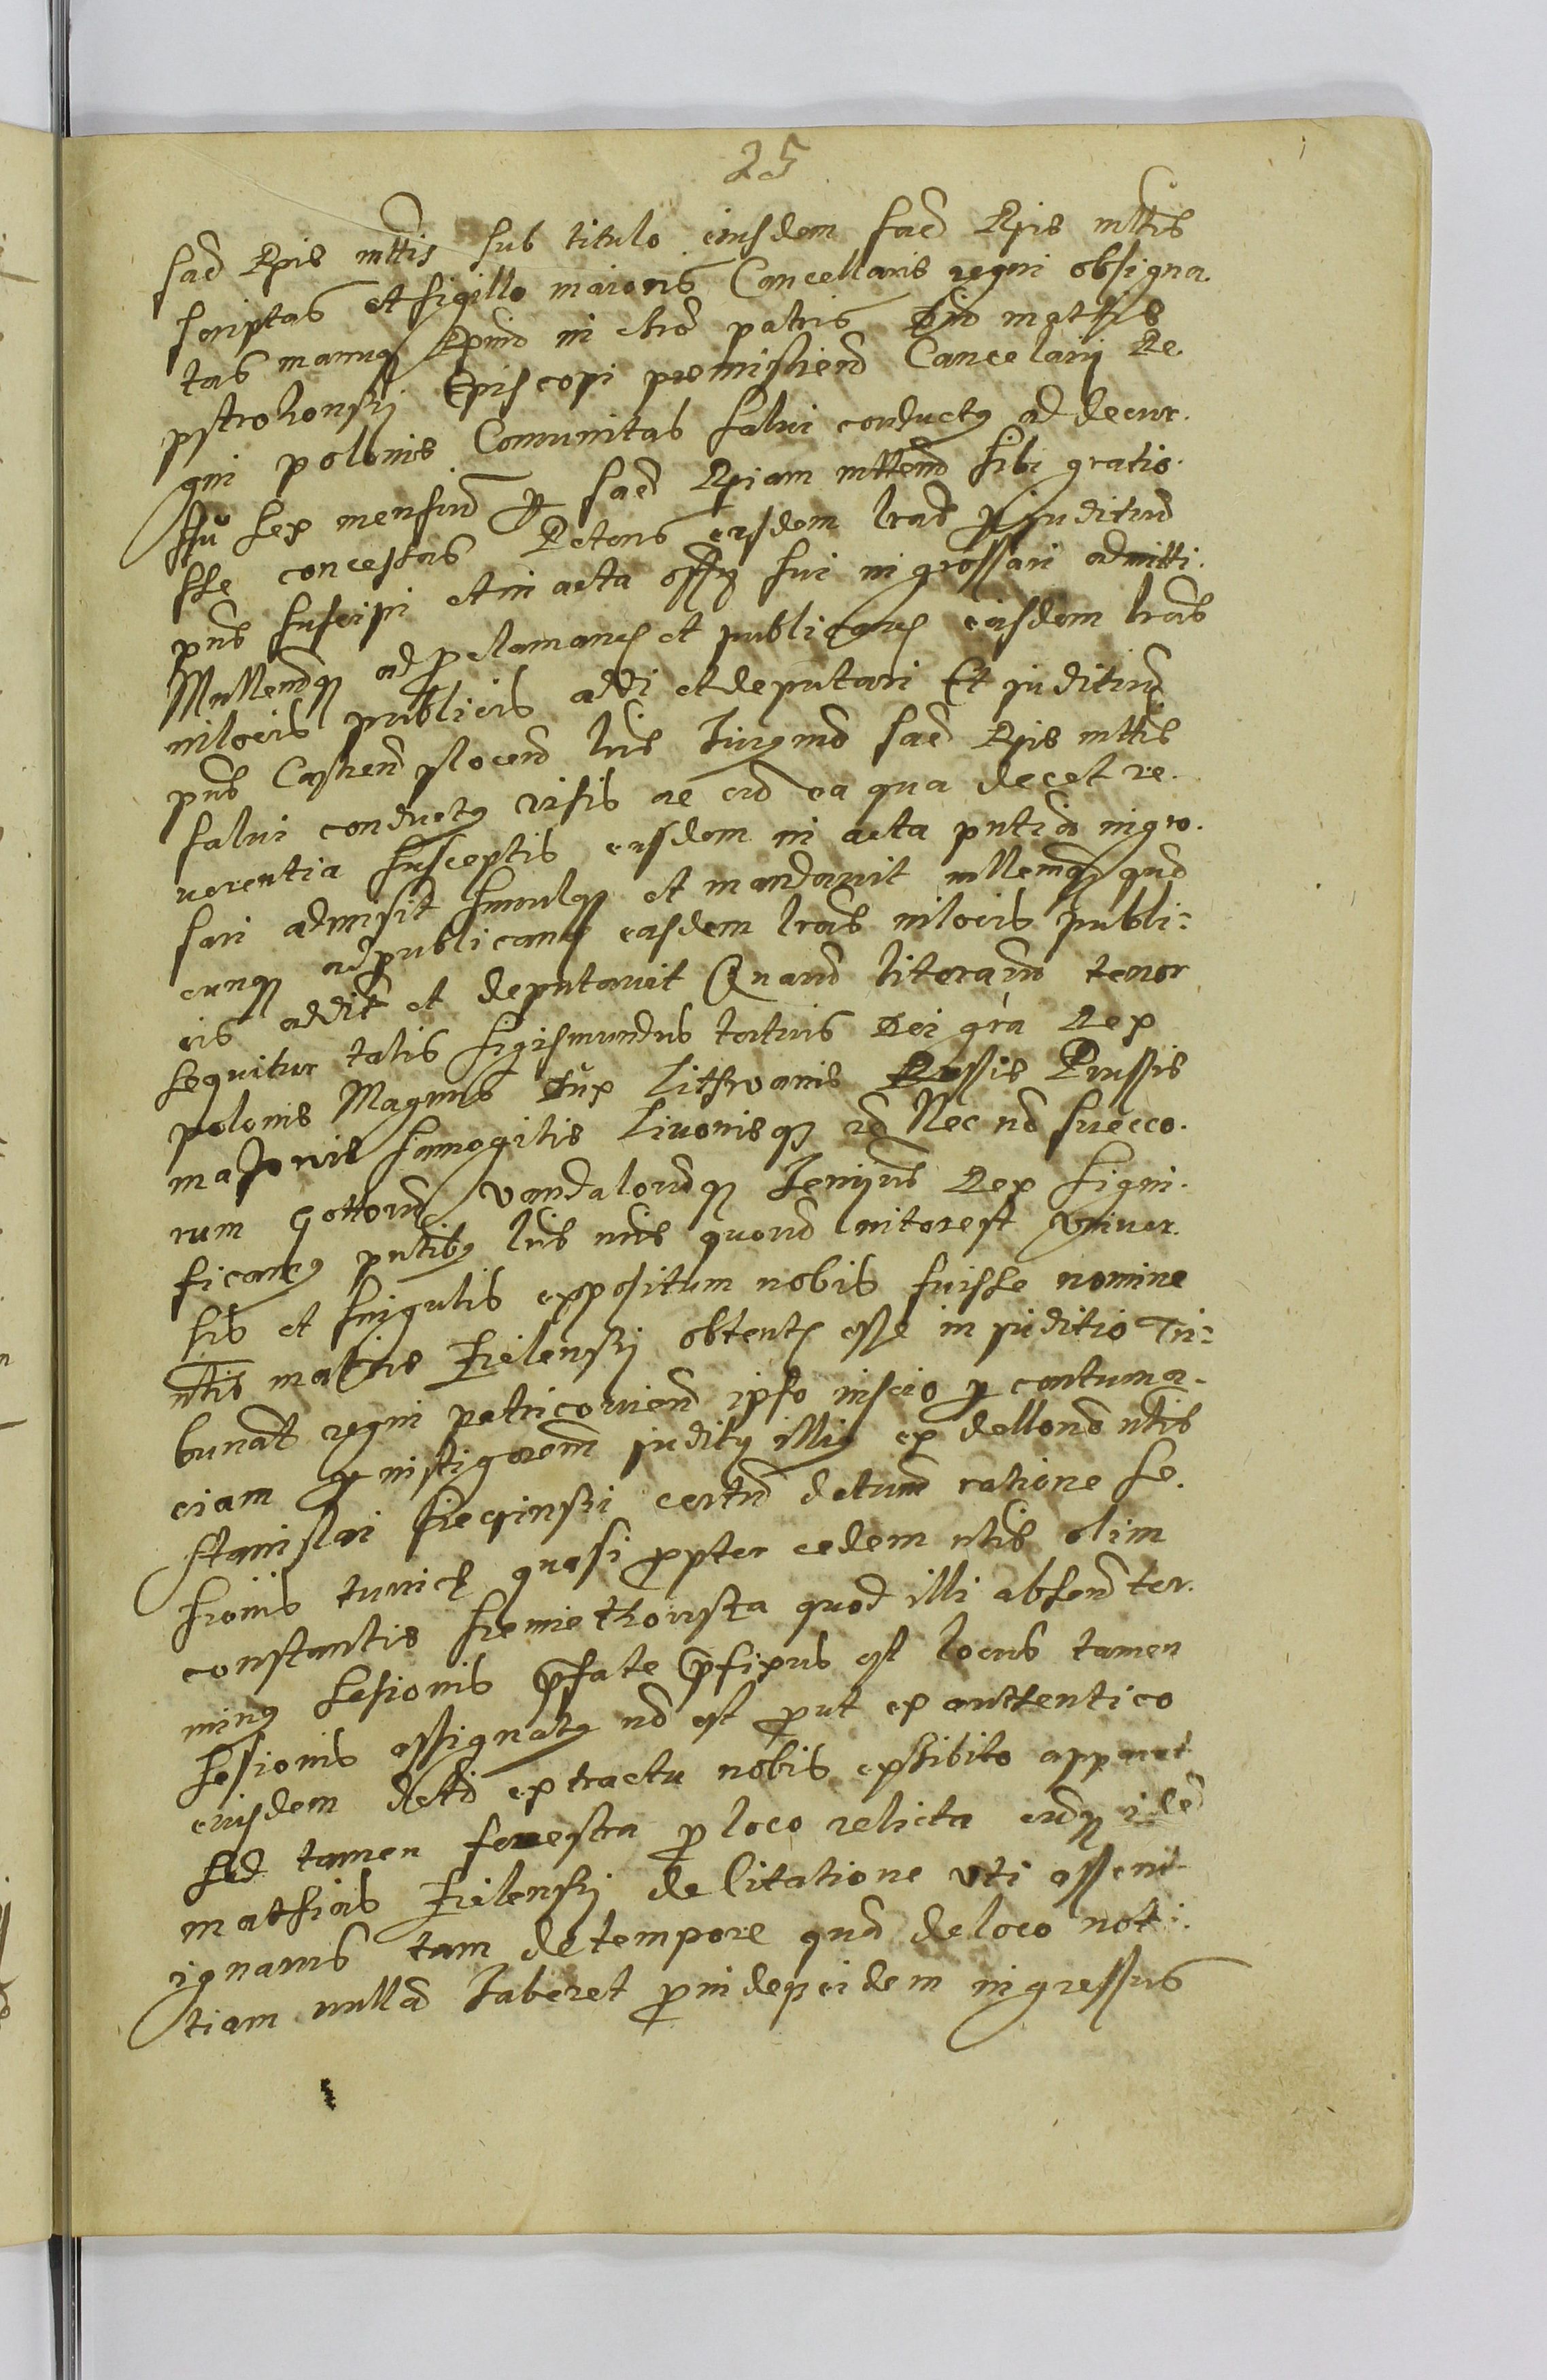 25
sac Rgis mttis sub titulo eiusdem sac Rgis mttis
scriptas et sigillo maioris Cancellaris regni obsigna.
tas manuq Rndi in chro patris Dni mathis
pstrokonskj Episcopi premislien Cancelarij Re.
gni polonis Comunitas salui conductg ad decur.
su sex mensiu p sac Rgiam mttem sibi gratio.
sse concessas Petens easdem lras p juditiu
pns suscipi et in acta offy sui ingrossari admitti.
Mllemq ad proclamang et publicang easdem lras
in locis publicis addi et deputari Et juditiu
pns Castren plocen lris huigmo sac Rgis mttis
salui conductg visis ac cu ea qua decet re.
uerentia susceptis easdem in acta pntia ingro.
sari admisit simulq et mandauit mllemq qd
cunq ad publicang easdem lras in locis publi:
cis addit et deputauit Quaru literaru tenor
sequitur talis Sigismundus tertius Dei gra Rex
polonis Magnus Dux Lithvanis Russis Prussis
masouis samogitis Liuonisq rc Nec no suecco.
rum gottoru vandaloruq Heriijus Rex signi.
ficamg pntibg lris nris quoru interest vniuer.
sis et singulis expositum nobis fuisse nomine
nbtis mathis Zielenskj obtent esse in juditio Tri:
bunat regni petricouien ipso inscio p contuma.
ciam p instigatorem juditij illig ex dellone nbtis
stanislai sieginski certu dctum ratione se.
ssionis turris quasi propter cedem nbtis olim
constantis siemiethowska quod illi absen ter.
ming sesionis prefate prefixus est locus tamen
sesionis assignatg no est prout ex anttentico
eiusdem dcti extractu nobis exhibito apparet
sed tamen fenestra pro loco relicta cuq ide
mathias Zielenskj de citatione vti asserit
ignarus tam de tempore qua de loco noti:
tiam nulla haberet proinde eidem ingressus